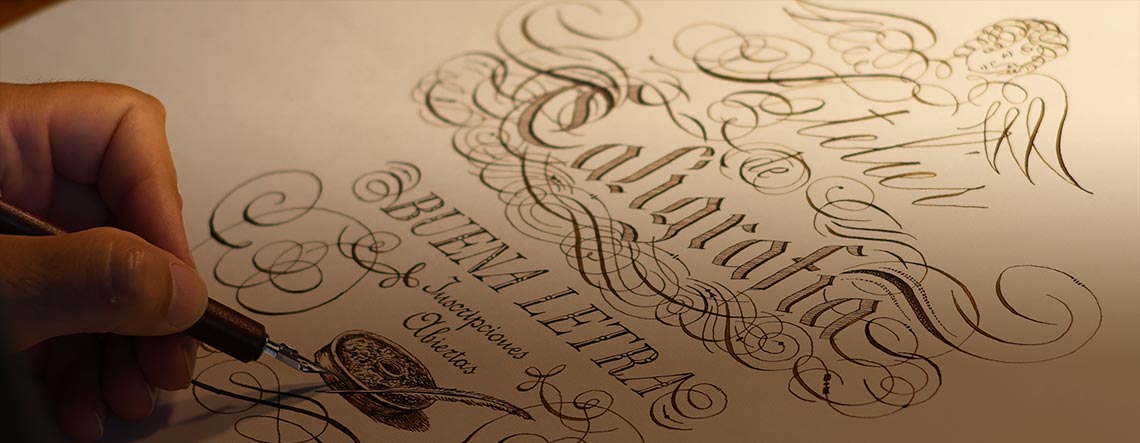 Atelier
de
Caligrafía
BUENA LETRA
Inscripciones
Abiertas